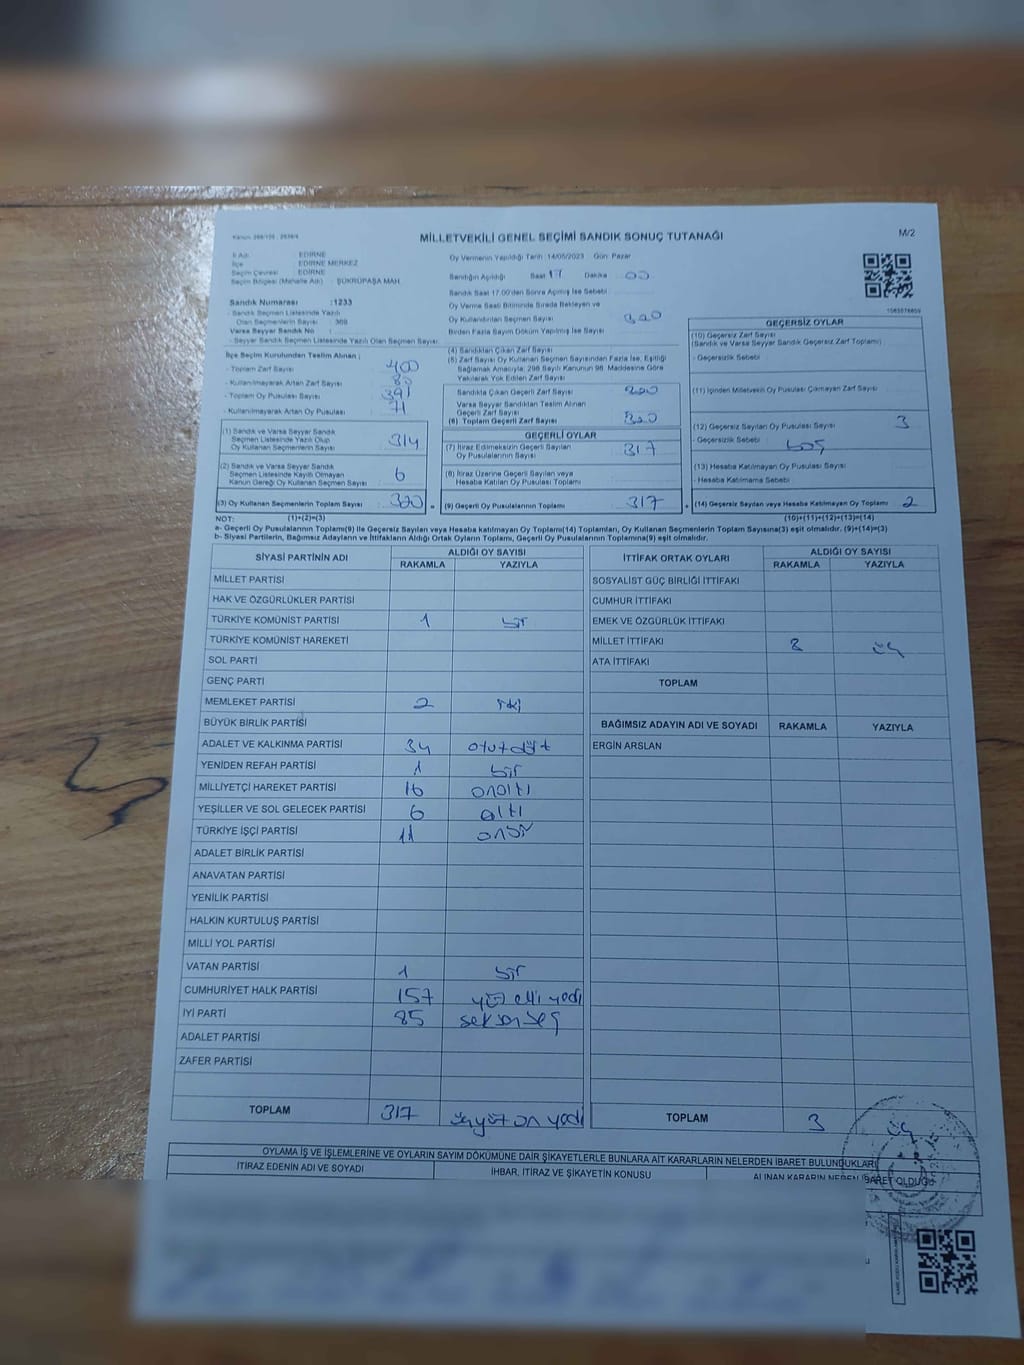 MİLLETVEKİLİ GENEL SEÇİMİ SANDIK SONUÇ TUTANAĞI
M/2
İl Adı : EDİRNE
İlçe : EDİRNE MERKEZ
Seçim Çevresi : EDİRNE
Seçim Bölgesi (Mahalle Adı) : ŞÜKRÜPAŞA MAH.
Oy Vermenin Yapıldığı Tarih :14/05/2023 Gün: Pazar
Sandığın Açıldığı Saat 17 Dakika 00
Sandık Saat 17.00'den Sonra Açılmış İse Sebebi
Oy Verme Saati Bitiminde Sırada Bekleyen ve
Oy Kullandırılan Seçmen Sayısı 320
Birden Fazla Sayım Döküm Yapılmış İse Sayısı
Sandık Numarası :1233
- Sandık Seçmen Listesinde Yazılı
Olan Seçmenlerin Sayısı : 369
Varsa Seyyar Sandık No :
- Seyyar Sandık Seçmen Listesinde Yazılı Olan Seçmen Sayısı
İlçe Seçim Kurulundan Teslim Alınan ;
- Toplam Zarf Sayısı : 400
- Kullanılmayarak Artan Zarf Sayısı : 80
- Toplam Oy Pusulası Sayısı : 391
- Kullanılmayarak Artan Oy Pusulası : 71
(1) Sandık ve Varsa Seyyar Sandık
Seçmen Listesinde Yazılı Olup
Oy Kullanan Seçmenlerin Sayısı : 314
(2) Sandık ve Varsa Seyyar Sandık
Seçmen Listesinde Kayıtlı Olmayan
Kanun Gereği Oy Kullanan Seçmen Sayısı : 6
(3) Oy Kullanan Seçmenlerin Toplam Sayısı : 320
(1)+(2)=(3)
(4) Sandıktan Çıkan Zarf Sayısı
(5) Zarf Sayısı Oy Kullanan Seçmen Sayısından Fazla İse, Eşitliği
Sağlamak Amacıyla, 298 Sayılı Kanunun 98. Maddesine Göre
Yakılarak Yok Edilen Zarf Sayısı
Sandıkta Çıkan Geçerli Zarf Sayısı 320
Varsa Seyyar Sandıktan Teslim Alınan
Geçerli Zarf Sayısı
(6) Toplam Geçerli Zarf Sayısı 320
GEÇERLİ OYLAR
(7) İtiraz Edilmeksizin Geçerli Sayılan
Oy Pusulalarının Sayısı 317
(8) İtiraz Üzerine Geçerli Sayılan veya
Hesaba Katılan Oy Pusulası Toplamı
(9) Geçerli Oy Pusulalarının Toplamı 317
GEÇERSİZ OYLAR
(10) Geçersiz Zarf Sayısı
(Sandık ve Varsa Seyyar Sandık Geçersiz Zarf Toplamı)
- Geçersizlik Sebebi
(11) İçinden Milletvekili Oy Pusulası Çıkmayan Zarf Sayısı
(12) Geçersiz Sayılan Oy Pusulası Sayısı 3
- Geçersizlik Sebebi : boş
(13) Hesaba Katılmayan Oy Pusulası Sayısı
- Hesaba Katılmama Sebebi
(14) Geçersiz Sayılan veya Hesaba Katılmayan Oy Toplamı 2
(10)+(11)+(12)+(13)=(14)
NOT:
a- Geçerli Oy Pusulalarının Toplamı(9) ile Geçersiz Sayılan veya Hesaba katılmayan Oy Toplamı(14) Toplamları, Oy Kullanan Seçmenlerin Toplam Sayısına(3) eşit olmalıdır. (9)+(14)=(3)
b- Siyasi Partilerin, Bağımsız Adayların ve İttifakların Aldığı Ortak Oyların Toplamı, Geçerli Oy Pusulalarının Toplamına(9) eşit olmalıdır.
SİYASİ PARTİNİN ADI ALDIĞI OY SAYISI
RAKAMLA YAZIYLA
MİLLET PARTİSİ
HAK VE ÖZGÜRLÜKLER PARTİSİ
TÜRKİYE KOMÜNİST PARTİSİ 1 bir
TÜRKİYE KOMÜNİST HAREKETİ
SOL PARTİ
GENÇ PARTİ
MEMLEKET PARTİSİ 2 iki
BÜYÜK BİRLİK PARTİSİ
ADALET VE KALKINMA PARTİSİ 34 otuzdört
YENİDEN REFAH PARTİSİ 1 bir
MİLLİYETÇİ HAREKET PARTİSİ 16 onaltı
YEŞİLLER VE SOL GELECEK PARTİSİ 6 altı
TÜRKİYE İŞÇİ PARTİSİ 11 onbir
ADALET BİRLİK PARTİSİ
ANAVATAN PARTİSİ
YENİLİK PARTİSİ
HALKIN KURTULUŞ PARTİSİ
MİLLİ YOL PARTİSİ
VATAN PARTİSİ 1 bir
CUMHURİYET HALK PARTİSİ 157 yüz elli yedi
İYİ PARTİ 85 seksen beş
ADALET PARTİSİ
ZAFER PARTİSİ
TOPLAM 317 üçyüz on yedi
İTTİFAK ORTAK OYLARI ALDIĞI OY SAYISI
RAKAMLA YAZIYLA
SOSYALİST GÜÇ BİRLİĞİ İTTİFAKI
CUMHUR İTTİFAKI
EMEK VE ÖZGÜRLÜK İTTİFAKI
MİLLET İTTİFAKI 3 üç
ATA İTTİFAKI
TOPLAM
BAĞIMSIZ ADAYIN ADI VE SOYADI RAKAMLA YAZIYLA
ERGİN ARSLAN
TOPLAM 3 üç
OYLAMA İŞ VE İŞLEMLERİNE VE OYLARIN SAYIM DÖKÜMÜNE DAİR ŞİKAYETLERLE BUNLARA AİT KARARLARIN NELERDEN İBARET BULUNDUKLARI
İTİRAZ EDENİN ADI VE SOYADI İHBAR, İTİRAZ VE ŞİKAYETİN KONUSU ALINAN KARARIN NEDEN İBARET OLDUĞU